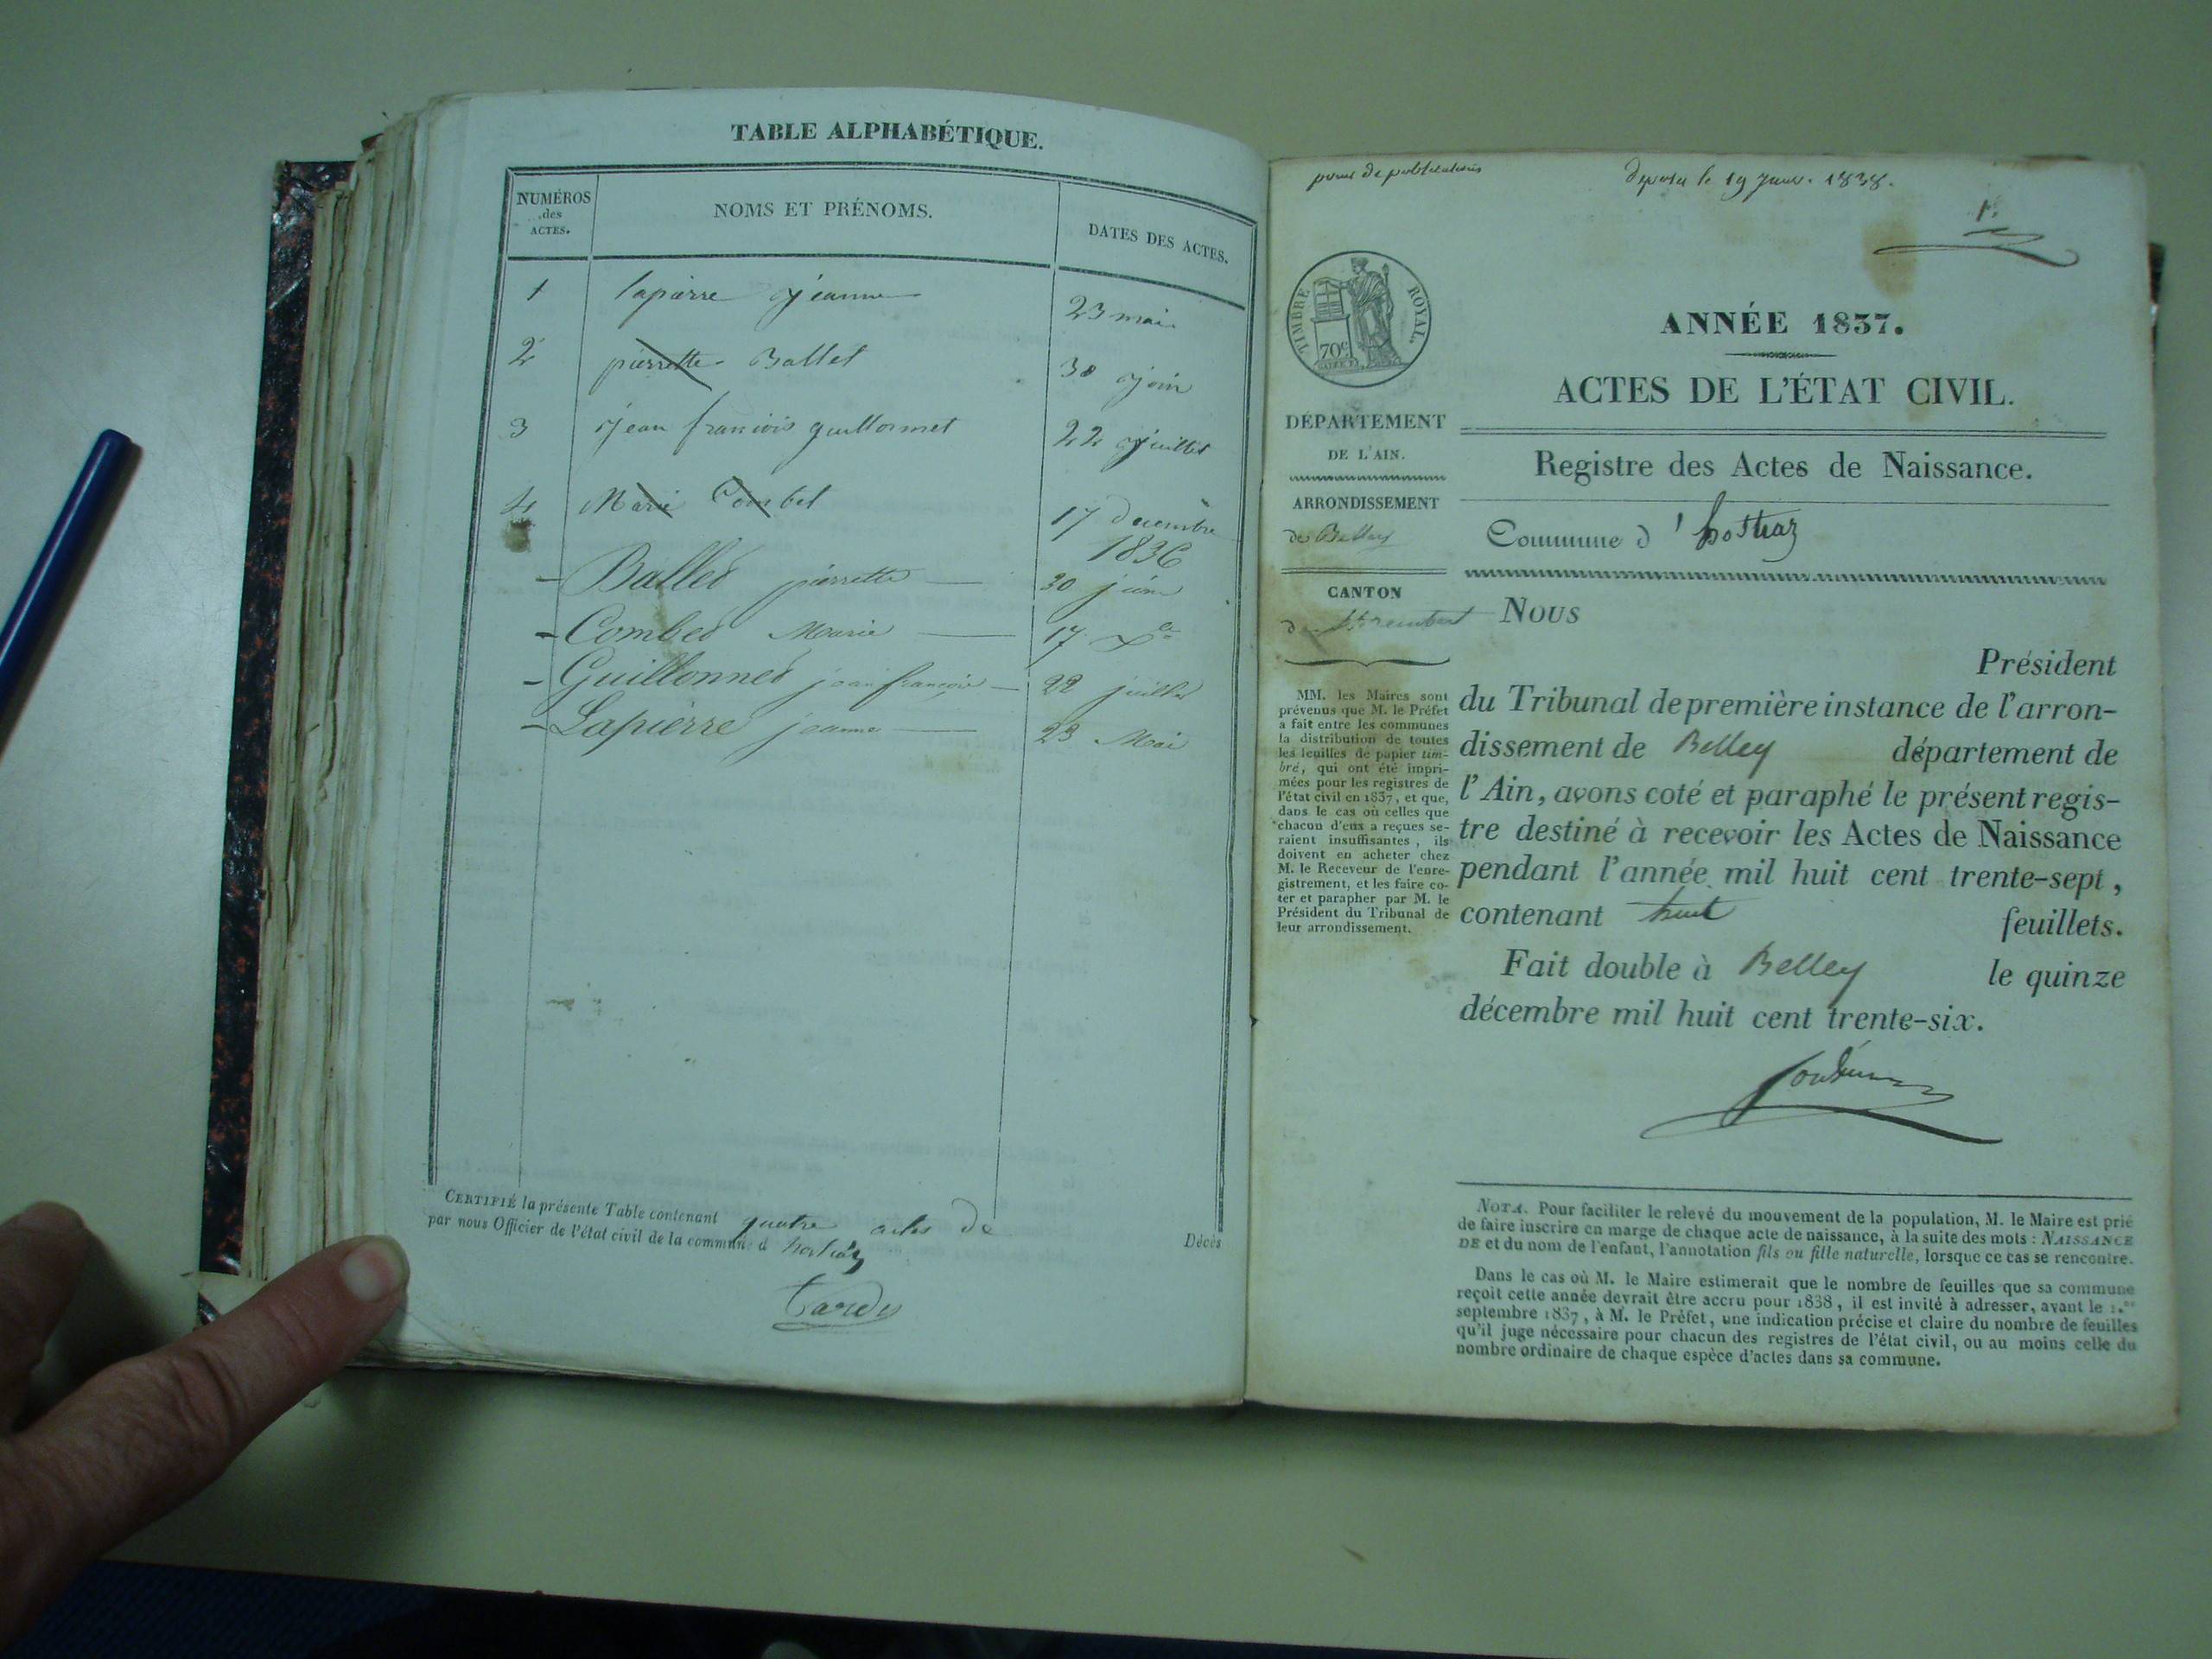 TABLE ALPHABÉTIQUE.
NUMÉROS
des
ACTES.
NOMS ET PRÉNOMS.
DATES DES ACTES.
1 lapierre jeanne 23 mai
2 pierrette Ballet 30 join
3 jean franiois guillonnet 22 juillet
4 Marie Combet 17 decembre
1836
- Ballet pierrette — 30 juin
- Combet Marie — 17 Xe
- Guillonnet jean françois — 22 juillet
- Lapierre jeanne — 23 Mai
CERTIFIÉ la présente Table contenant quatre actes de Décès
par nous Officier de l'état civil de la commune d'hostiaz
Tardy
point de publications
déposé le 19 janv. 1838.
TIMBRE ROYAL.
70c
ANNÉE 1837.
ACTES DE L'ÉTAT CIVIL.
DÉPARTEMENT
DE L'AIN.
ARRONDISSEMENT
de Belley
CANTON
de St rambert
Registre des Actes de Naissance.
Commune d'hostiaz
MM. les Maires sont
prévenus que M. le Préfet
a fait entre les communes
la distribution de toutes
les feuilles de papier tim-
bré, qui ont été impri-
mées pour les registres de
l'état civil en 1837, et que,
dans le cas où celles que
chacun d'eux a reçues se-
raient insuffisantes, ils
doivent en acheter chez
M. le Receveur de l'enre-
gistrement, et les faire co-
ter et parapher par M. le
Président du Tribunal de
leur arrondissement.
NOUS
Président
du Tribunal de première instance de l'arron-
dissement de Belley département de
l'Ain, avons coté et paraphé le présent regis-
tre destiné à recevoir les Actes de Naissance
pendant l'année mil huit cent trente-sept,
contenant huit feuillets.
Fait double à Belley le quinze
décembre mil huit cent trente-six.
NOTA. Pour faciliter le relevé du mouvement de la population, M. le Maire est prié
de faire inscrire en marge de chaque acte de naissance, à la suite des mots : NAISSANCE
DE et du nom de l'enfant, l'annotation fils ou fille naturelle, lorsque ce cas se rencontre.
Dans le cas où M. le Maire estimerait que le nombre de feuilles que sa commune
reçoit cette année devrait être accru pour 1838, il est invité à adresser, avant le 1.er
septembre 1837, à M. le Préfet, une indication précise et claire du nombre de feuilles
qu'il juge nécessaire pour chacun des registres de l'état civil, ou au moins celle du
nombre ordinaire de chaque espèce d'actes dans sa commune.